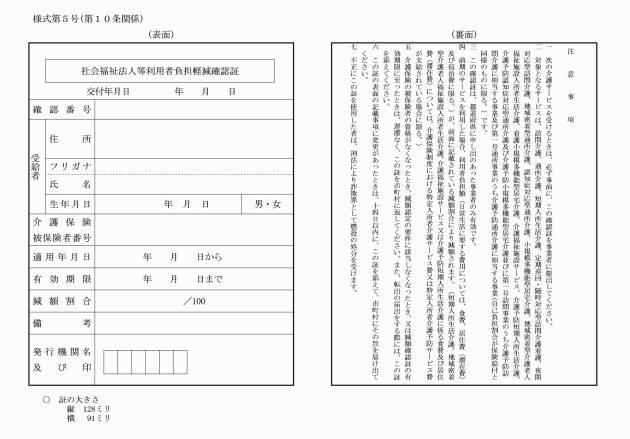 様式第５号(第１０条関係)
(表面)
社会福祉法人等利用者負担軽減確認証
交付年月日 年 月 日
確認番号
受給者
住所
フリガナ
氏名
生年月日 年 月 日 男・女
介護保険
被保険者番号
適用年月日 年 月 日から
有効期限 年 月 日まで
減額割合 ／100
備考
発行機関名
及び印
○ 証の大きさ
縦 128ミリ
横 91ミリ
(裏面)
注意事項
一 次の介護サービスを受けるときは、必ず事前に、この確認証を事業者に提出してください。
二 対象となるサービスは、訪問介護、通所介護、短期入所生活介護、定期巡回・随時対応型訪問介護看護、夜間
対応型訪問介護、地域密着型通所介護、認知症対応型通所介護、小規模多機能型居宅介護、地域密着型介護老人
福祉施設入所者生活介護、看護小規模多機能型居宅介護、介護福祉施設サービス、介護予防短期入所生活介護、
介護予防認知症対応型通所介護及び介護予防小規模多機能型居宅介護並びに第一号訪問事業のうち介護予防訪
問介護に相当する事業及び第一号通所事業のうち介護予防通所介護に相当する事業(自己負担割合が保険給付と
同様のものに限る。)です。
三 この確認証は、都道府県に申し出のあった事業者のみ有効です。
四 前期のサービスを利用した場合、利用者負担額（日常生活に要する費用については、食費、居住費（滞在費）
及び宿泊費に限る。）が、前面に記載されている減額割合により減額されます。（短期入所生活介護、地域密着
型介護老人福祉施設入所者生活介護、介護福祉施設サービス又は介護予防短期入所生活介護に係る食費及び居住
費（滞在費）については、介護保険制度における特定入所者介護サービス費又は特定入所者介護予防サービス費
が支給されている場合に限る。）
五 介護保険の被保険者の資格がなくなったとき、減額認定の要件に該当しなくなったとき、又は減額確認証の有
効期限に至ったときは、遅滞なく、この証を市町村に返してください。また、転出の届出をする際には、この証
を添えてください。
六 この証の表面の記載事項に変更があったときは、十四日以内に、この証を添えて、市町村にその旨を届け出て
ください。
七 不正にこの証を使用した者は、刑法により詐欺罪として懲役の処分を受けます。